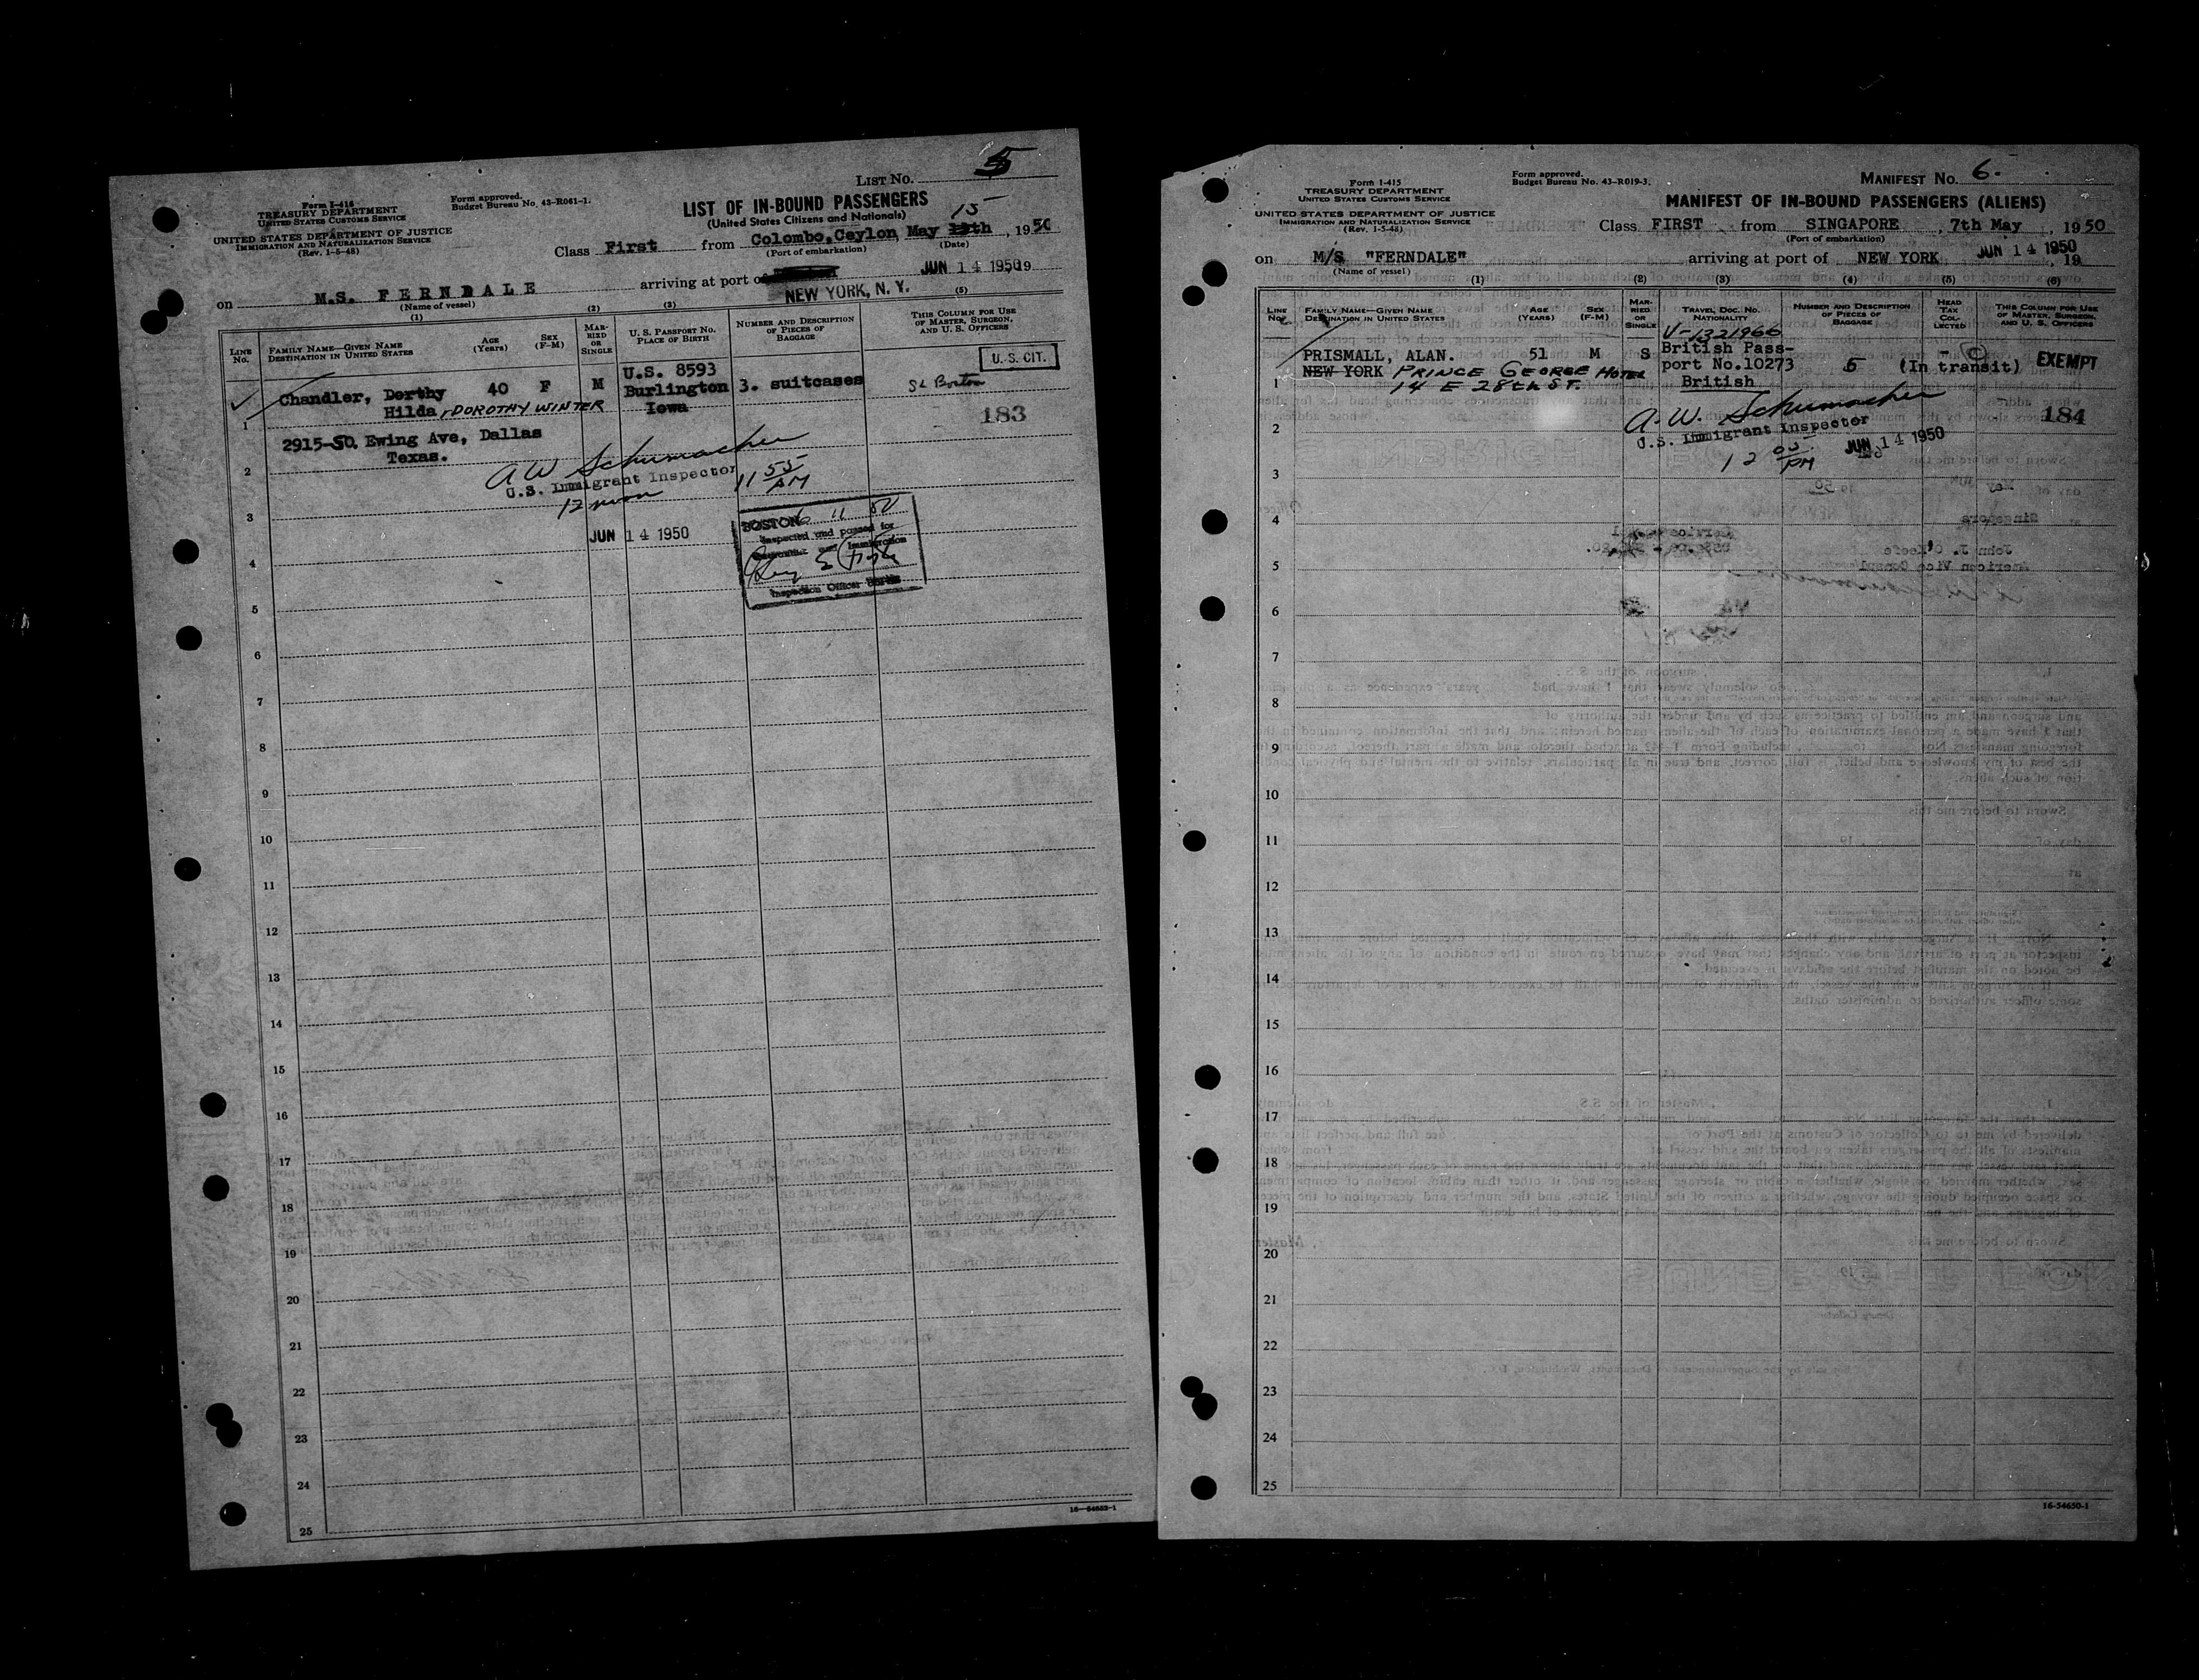 LIST No. 5
Form I-416
TREASURY DEPARTMENT
UNITED STATES CUSTOMS SERVICE
Form approved.
Budget Bureau No. 43-R061-1.
UNITED STATES DEPARTMENT OF JUSTICE
IMMIGRATION AND NATURALIZATION SERVICE
(Rev. 1-5-48)
LIST OF IN-BOUND PASSENGERS
(United States Citizens and Nationals)
15
Class First from Colombo, Ceylon, May th, 1950
(Port of embarkation) (Date)
on M.S. FERNDALE arriving at port of JUN 14 1950 19
(Name of vessel) NEW YORK, N. Y.
(1) (2) (3) (5)
LINE No. FAMILY NAME—GIVEN NAME DESTINATION IN UNITED STATES AGE (Years) SEX (F-M) MARRIED OR SINGLE U. S. PASSPORT NO. PLACE OF BIRTH NUMBER AND DESCRIPTION OF PIECES OF BAGGAGE THIS COLUMN FOR USE OF MASTER, SURGEON, AND U. S. OFFICERS
U. S. CIT.
U.S. 8593
Chandler, Dorthy 40 F M Burlington 3. suitcases SL Boston
1 Hilda, DOROTHY WINTER Iowa 183
2915-SO. Ewing Ave, Dallas
2 Texas.
A W Schumacher
U.S. Immigrant Inspector 11 55 AM
3 12 noon
JUN 14 1950
BOSTON 6 11 50
Inspected and passed for
and Immigration
Inspection Officer
4
5
6
7
8
9
10
11
12
13
14
15
16
17
18
19
20
21
22
23
24
25
16-54653-1
MANIFEST No. 6.
Form I-415
TREASURY DEPARTMENT
UNITED STATES CUSTOMS SERVICE
Form approved.
Budget Bureau No. 43-R019-3.
UNITED STATES DEPARTMENT OF JUSTICE
IMMIGRATION AND NATURALIZATION SERVICE
(Rev. 1-5-48)
MANIFEST OF IN-BOUND PASSENGERS (ALIENS)
Class FIRST from SINGAPORE, 7th May, 1950
(Port of embarkation)
on M/S "FERNDALE" arriving at port of NEW YORK JUN 14 1950, 19
(Name of vessel)
(1) (2) (3) (4) (5) (6)
LINE No. FAMILY NAME—GIVEN NAME DESTINATION IN UNITED STATES AGE (YEARS) SEX (F-M) MARRIED OR SINGLE TRAVEL DOC. NO. NATIONALITY NUMBER AND DESCRIPTION OF PIECES OF BAGGAGE HEAD TAX COLLECTED THIS COLUMN FOR USE OF MASTER, SURGEON, AND U. S. OFFICERS
V-1321966
PRISMALL, ALAN. 51 M S British Pass-
NEW YORK PRINCE GEORGE HOTEL port No.10273 5 (In transit) EXEMPT
1 14 E 28th ST. British
A. W. Schumacher 184
2 U.S. Immigrant Inspector
JUN 14 1950
12 05 PM
3
4
5
6
7
8
9
10
11
12
13
14
15
16
17
18
19
20
21
22
23
24
25
16-54650-1